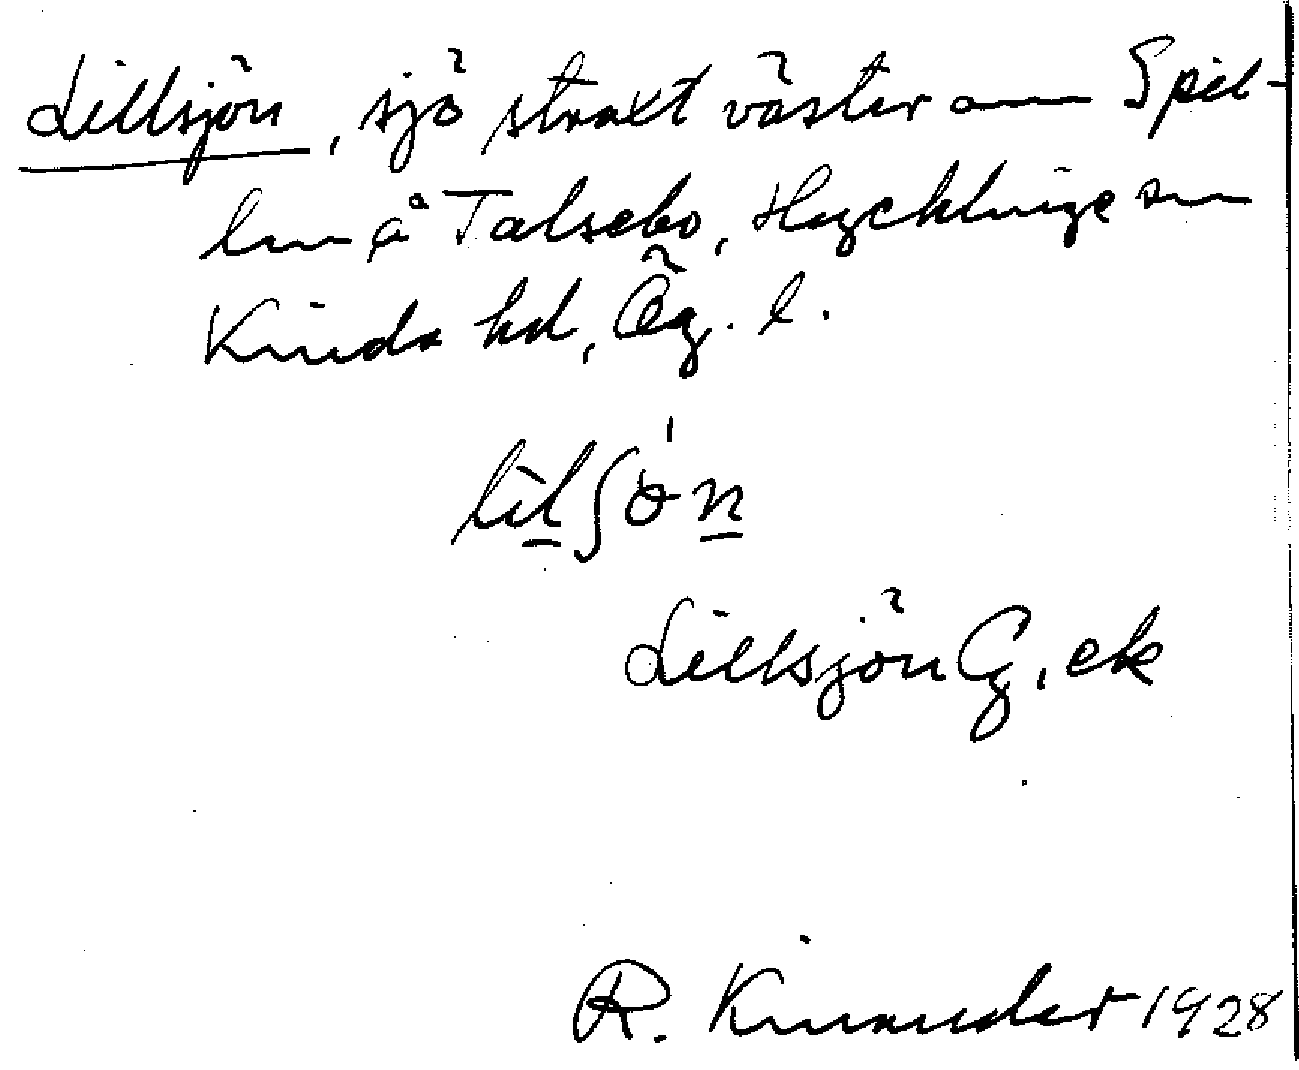 Lillsjön, sjö straxt väster om Spel-
len å Talsebo, Hycklinge sn
Kinda hd, Ög. l.
lilʃön
Lillsjön G, ek
R. Kinander 1928